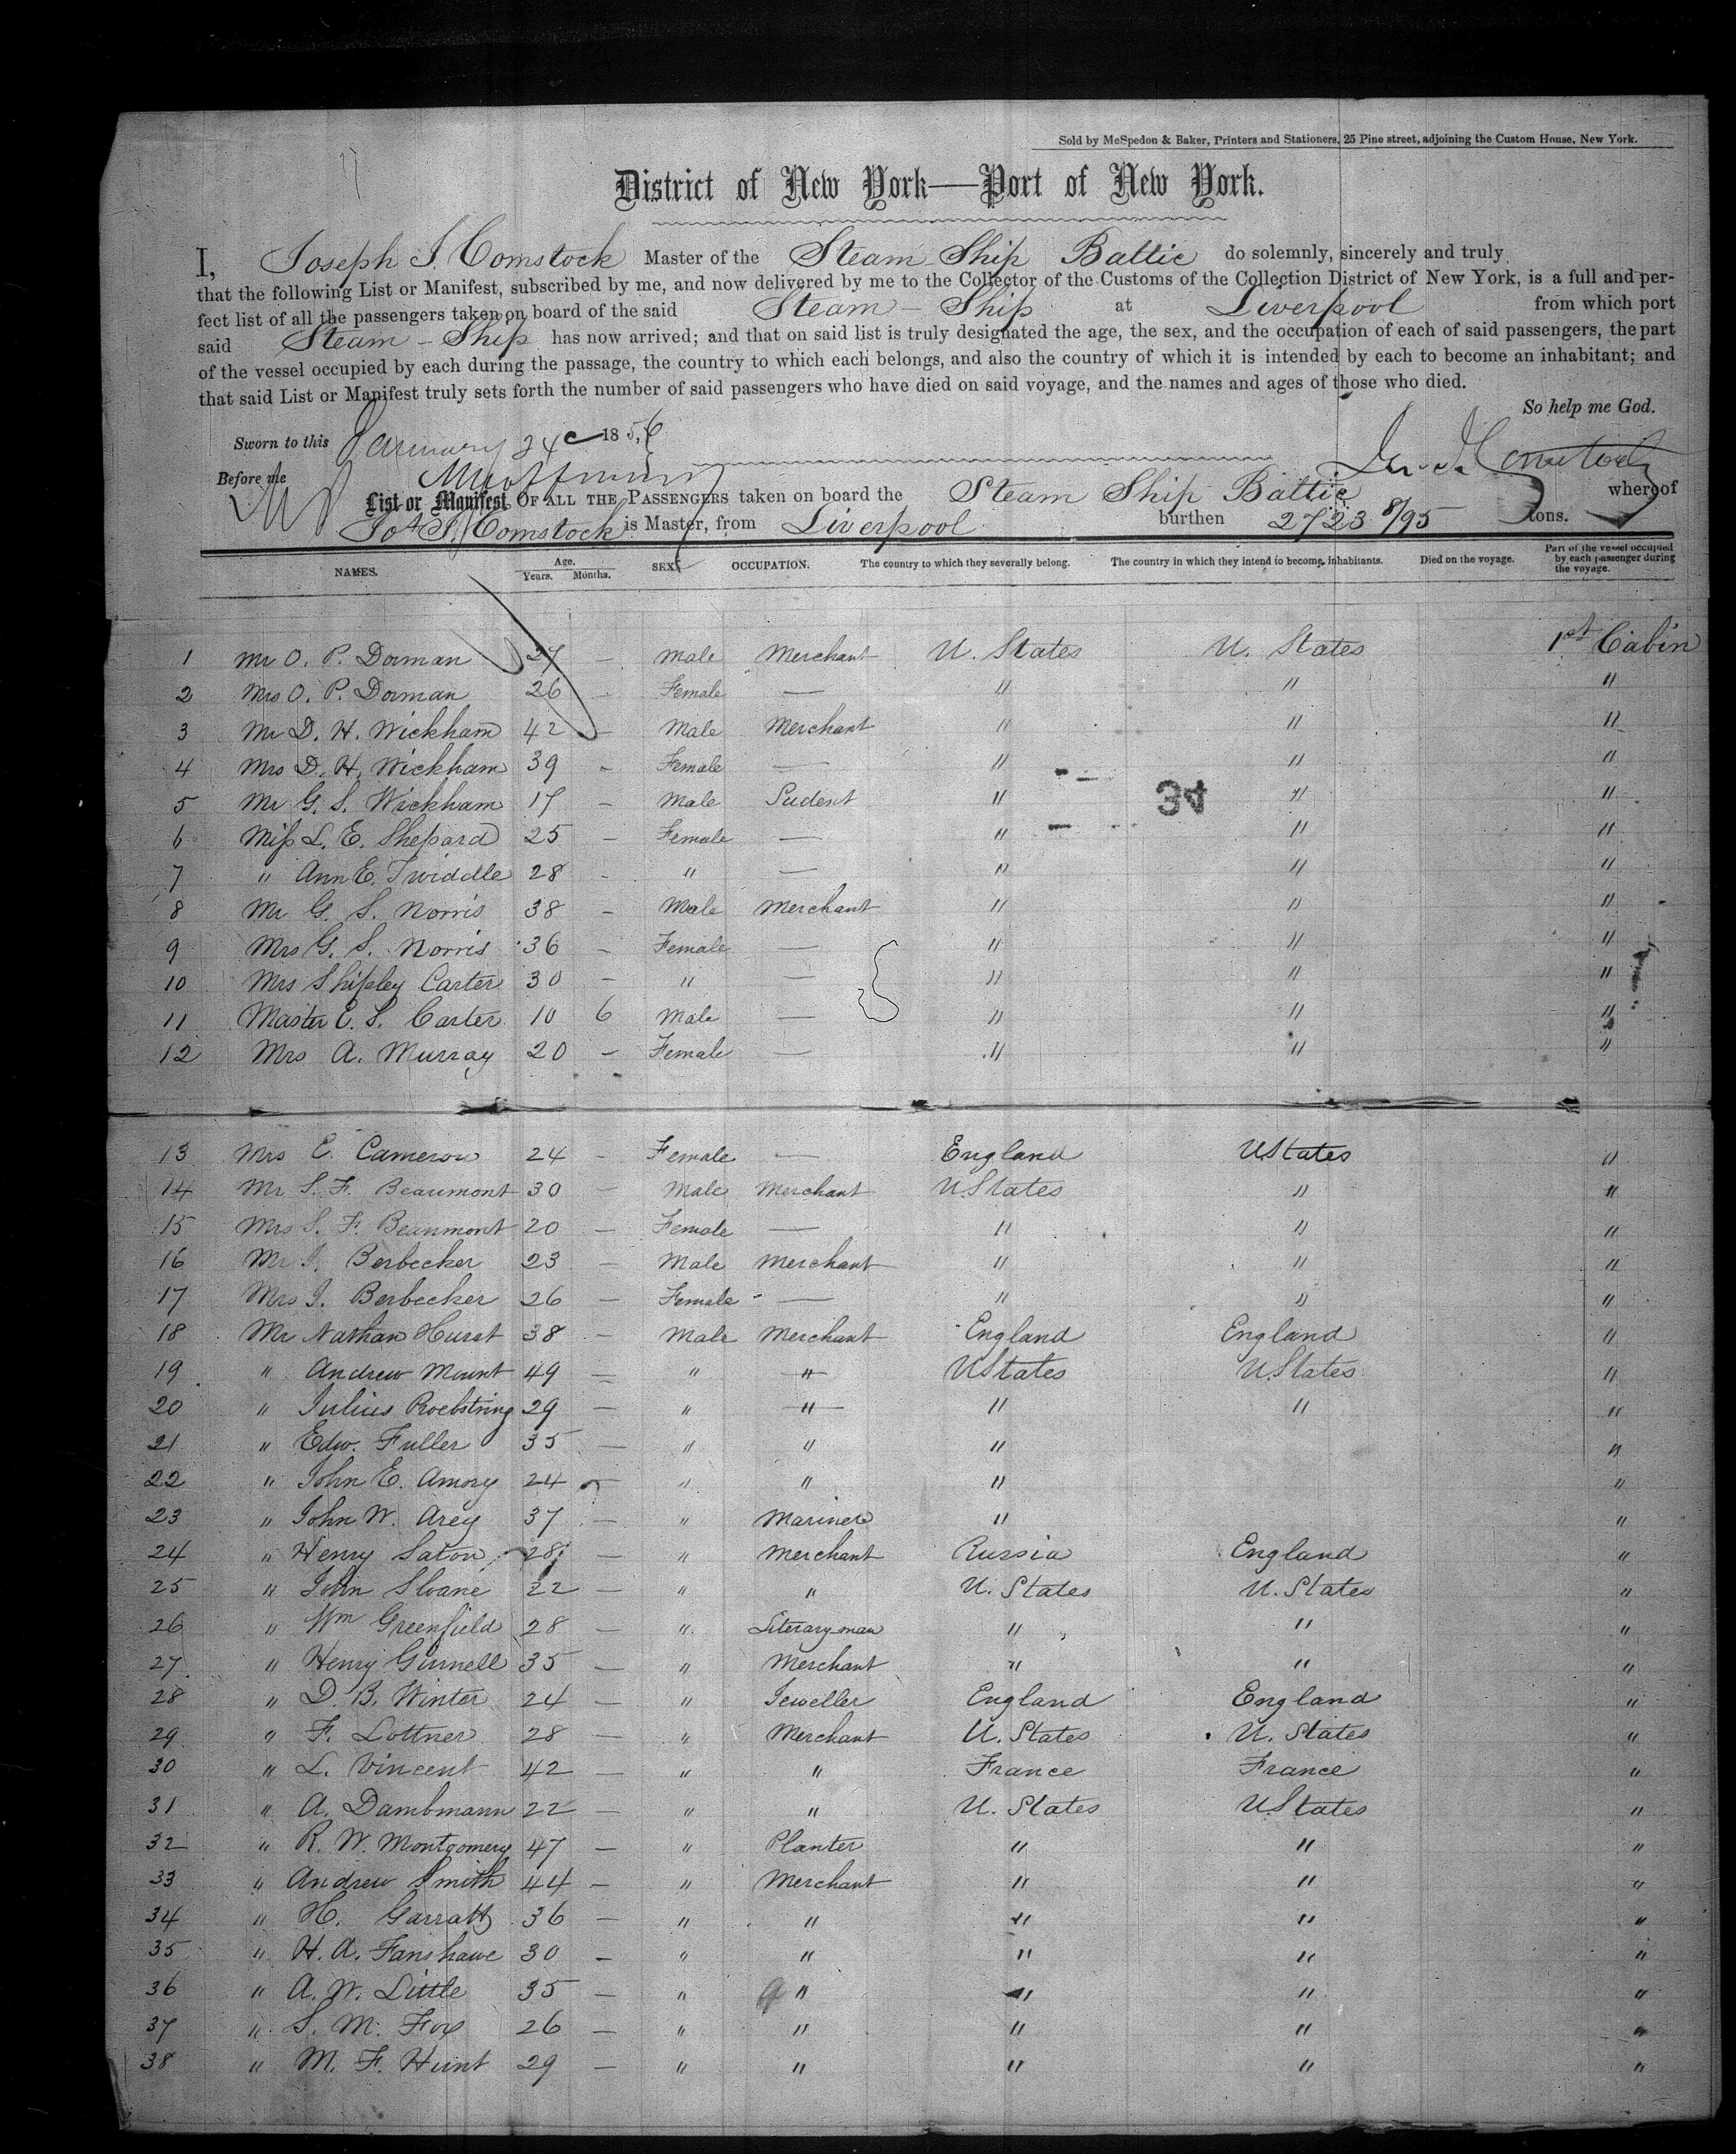 Sold by McSpedon & Baker, Printers and Stationers, 25 Pine street, adjoining the Custom House, New York.
District of New York—Port of New York.
I, Joseph J. Comstock Master of the Steam Ship Baltic do solemnly, sincerely and truly
that the following List or Manifest, subscribed by me, and now delivered by me to the Collector of the Customs of the Collection District of New York, is a full and per-
fect list of all the passengers taken on board of the said Steam-Ship at Liverpool from which port
said Steam-Ship has now arrived; and that on said list is truly designated the age, the sex, and the occupation of each of said passengers, the part
of the vessel occupied by each during the passage, the country to which each belongs, and also the country of which it is intended by each to become an inhabitant; and
that said List or Manifest truly sets forth the number of said passengers who have died on said voyage, and the names and ages of those who died.
So help me God.
Sworn to this January 24 1856
Before me
List or Manifest OF ALL THE PASSENGERS taken on board the Steam Ship Baltic whereof
Jos J. Comstock is Master, from Liverpool burthen 2723 8/95 tons.
NAMES. Age. Years. Months. SEX. OCCUPATION. The country to which they severally belong. The country in which they intend to become inhabitants. Died on the voyage. Part of the vessel occupied by each passenger during the voyage.
1 Mr O. P. Dorman 27 — Male Merchant U. States U. States 1st Cabin
2 Mrs O. P. Dorman 26 — Female — " " "
3 Mr D. H. Wickham 42 — Male Merchant " " "
4 Mrs D. H. Wickham 39 — Female — " " "
34
5 Mr G. S. Wickham 17 — Male Sudent " " "
6 Miss L. E. Shepard 25 — Female — " " "
7 " Ann E. Twiddle 28 — " — " " "
8 Mr G. S. Norris 38 — Male Merchant " " "
9 Mrs G. S. Norris 36 — Female — " " "
10 Mrs Shipley Carter 30 — " — " " "
11 Master E. S. Carter 10 6 Male — " " "
12 Mrs A. Murray 20 — Female — " " "
13 Mrs E. Cameron 24 — Female — England UStates "
14 Mr S. F. Beaumont 30 — Male Merchant UStates " "
15 Mrs S. F. Beaumont 20 — Female — " " "
16 Mr J. Berbecker 23 — Male Merchant " " "
17 Mrs J. Berbecker 26 — Female — " " "
18 Mr Nathan Hurst 38 — Male Merchant England England "
19 " Andrew Mount 49 — " " UStates UStates "
20 " Julius Roebstring 29 — " " " " "
21 " Edw. Fuller 35 — " " " "
22 " John E. Amory 24 — " " " "
23 " John W. Arey 37 — " Mariner " "
24 " Henry Saton 28 — " Merchant Russia England "
25 " John Sloane 22 — " " U. States U. States "
26 " Wm Greenfield 28 — " Literary man " " "
27 " Henry Gurnell 35 — " Merchant " " "
28 " D. B. Winter 24 — " Jeweller England England "
29 " F. Lottner 28 — " Merchant U. States U. States "
30 " L. Vincent 42 — " " France France "
31 " A. Dambmann 22 — " " U. States UStates "
32 " R. W. Montgomery 47 — " Planter " " "
33 " Andrew Smith 44 — " Merchant " " "
34 " H. Garratt 36 — " " " " "
35 " H. A. Fanshawe 30 — " " " " "
36 " A. W. Little 35 — " " " " "
37 " S. M. Fox 26 — " " " " "
38 " M. F. Hunt 29 — " " " " "